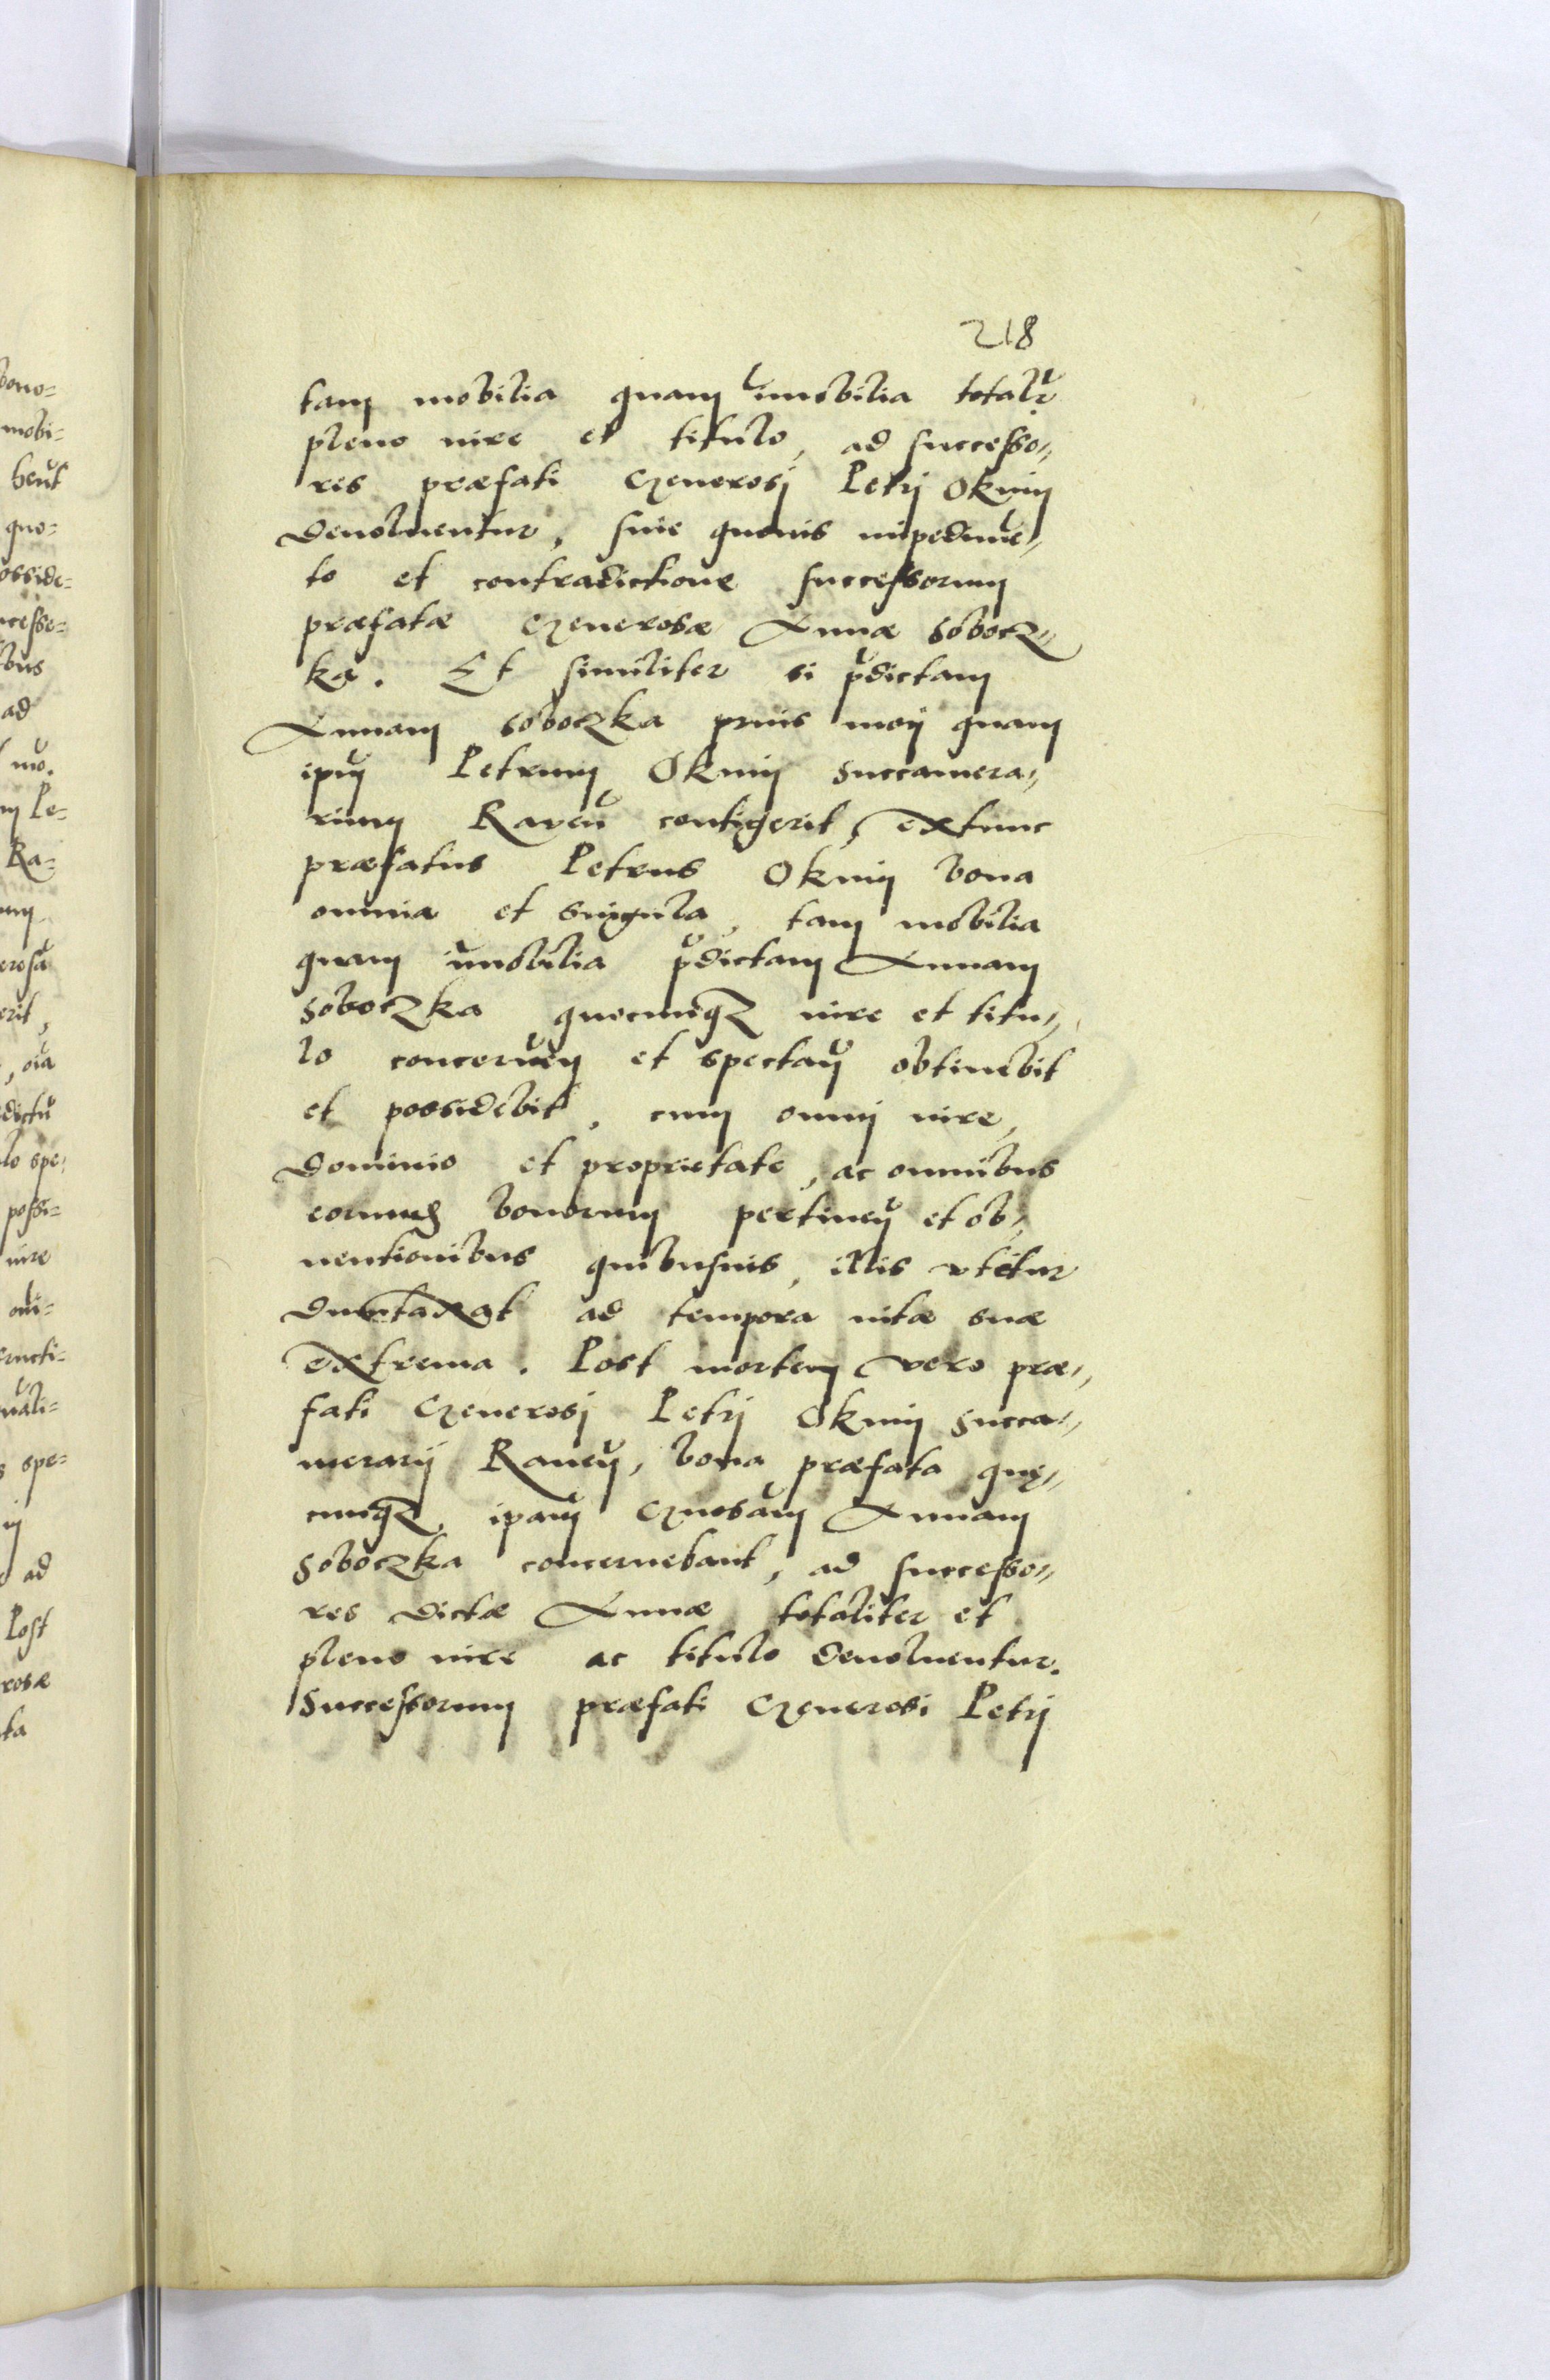 218
tam mobilia quam im̃obilia totalr̃
pleno iure et titulo, ad successo=
res præfati Generosj Petrj Okuny
deuoluentur, sine quouis impedimẽ=
to et contradictione successorum
præfatæ Generosæ Annæ Sobocz=
ka. Et similiter si p̃dictam
Annam Soboczka prius mori quam
ip̃m Petrum Okuny Succamera=
rium Raveñ contigerit, extunc
præfatus Petrus Okuny bona
omnia et singula, tam mobilia
quam im̃obilia p̃dictam Annam
Soboczka quocunq; iure et titu=
lo concerneñ et spectañ obtinebit
et possidebit, cum omni iure,
dominio et proprietate, ac omnibus
eorund bonorum pertineñ et ob=
uentionibus quibusuis, illis vtetur
duntaxat ad tempora uitæ suæ
extrema. Post mortem vero præ=
fati Generosj Petrj Okuny Succa=
merarij Raueñ, bona præfata quę=
cunq; ipam̃ Gnosam̃ Annam
Soboczka concernebant, ad successo=
res dictæ Annæ totaliter et
pleno iure ac titulo deuoluentur.
Successorum præfati Generosi Petrj
bono=
mobi=
heñt
quo=
osside=
ccesso=
bus
ad
mo.
m Pe=
Ra=
erosa
erit,
, oĩa
dictũ
lo spe=
possi=
iure
om̃i=
ructi=
uali=
s spe=
ad
Post
rosæ
ta